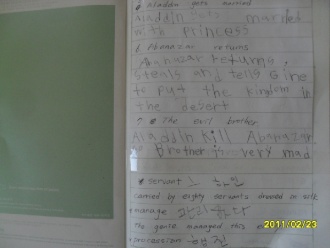 Aladdin gets married
Aladdin gets married
with princess
6 Abanazar returns
Abanazar returns,
steals and tells Gine
to put the kingdom in
the desert
7 The evil brother
Aladdin kill Abanazar
Brother is very mad
servant 하인
carried by eighty servants dressed in silk
manage 관리하다
the genie managed this
procession 행렬
2011/02/23